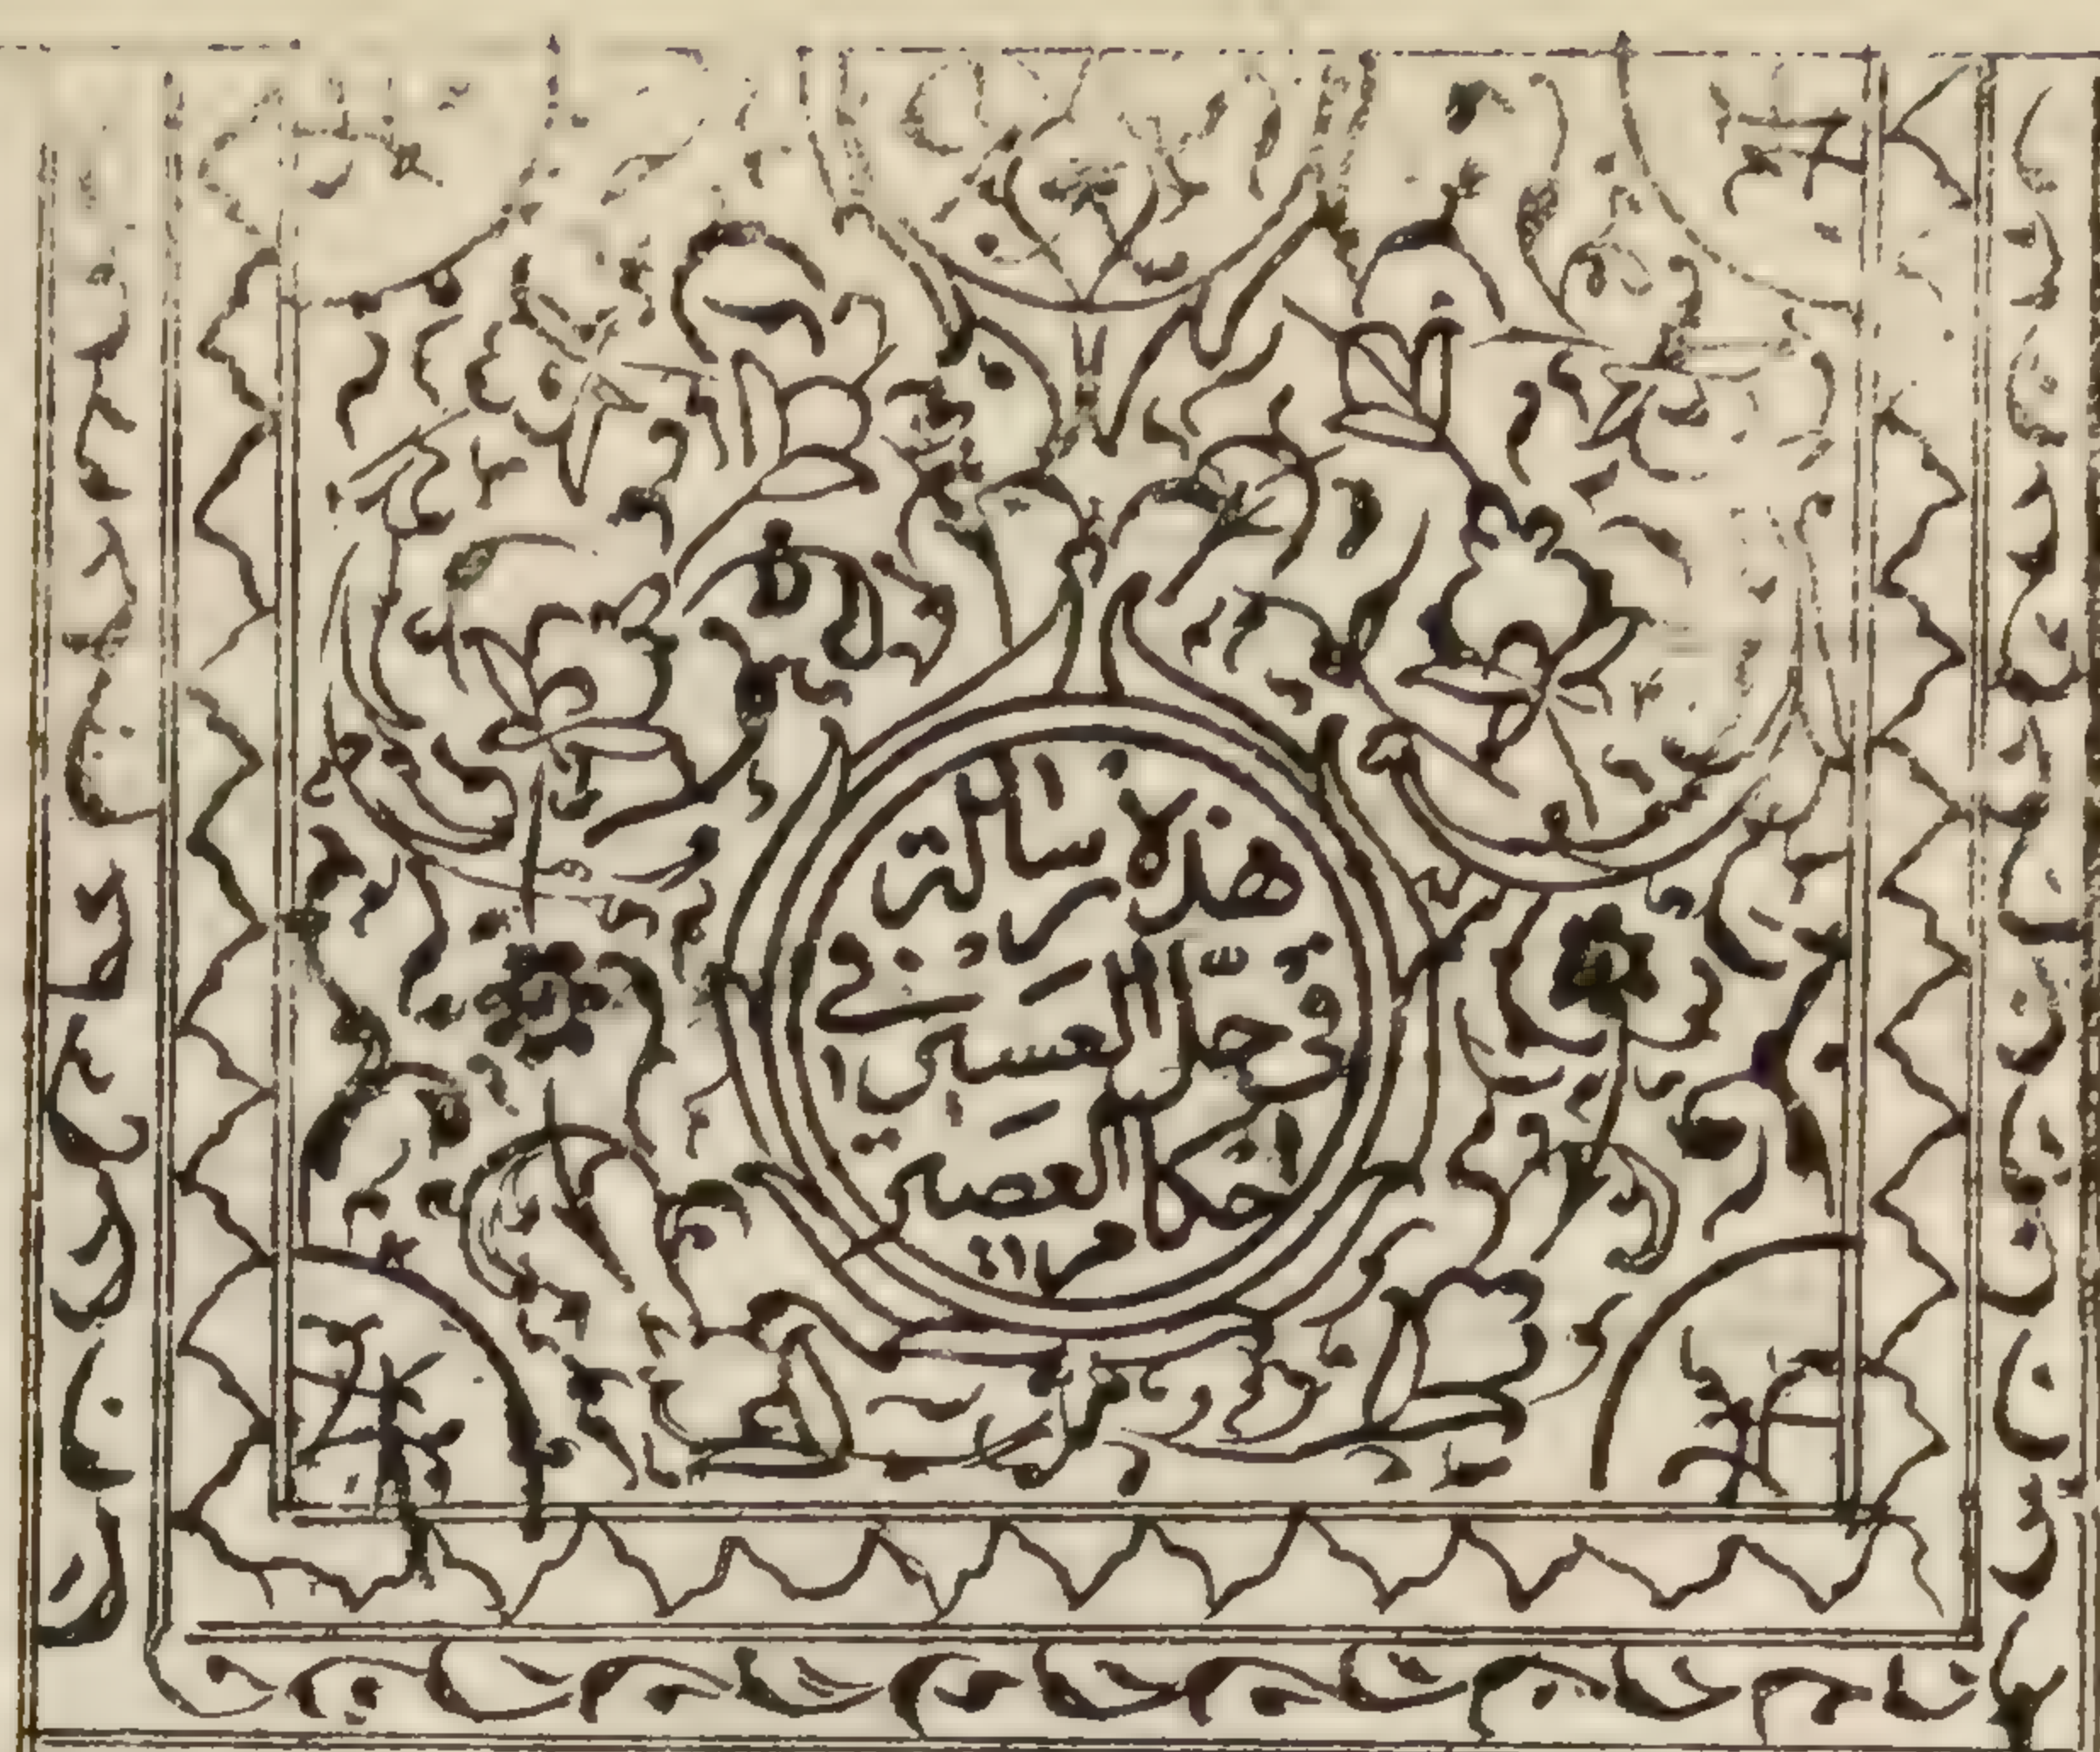 هذه رسالة
في حلّ العسير في
احكام العصير